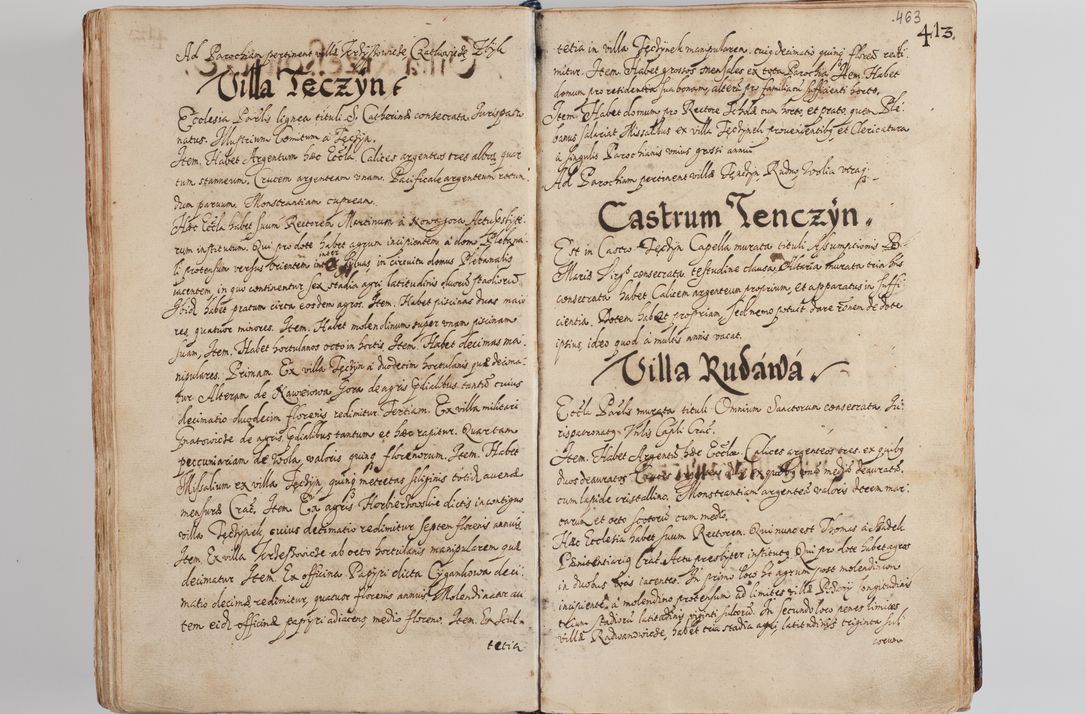 Ad Parochiam pertinent villæ Krzysowicæ Czatkowicæ Zbik
Villa Tęczÿn
Ecclesia Parlis lignea tituli S. Catherinæ consecrata. Jurispatro
natus. Illustrium Comitum à Tęczyn.
Item. Habet Argentum hæc Eccla Calices argenteos tres albos, quar
tum stanneum, Crucem argenteam vnam. Pacificale argenteum rotun
dum paruum, Monstrantiam cupream.
Hæc Eccla habet suum Rectorem Martinum à Nowagora Actu pbyte
rum institutum. Qui pro dote habet agrum incipientem à domo Plebana
li protensum versus Orientem inter siluas, in circuitu domus Plebanalis
iacentem, in quo continentur sex stadia agri latitudinis
Ibid. habet pratum circa eosdem agros. Item. Habet piscinas duas maio
res, quatuor minores. Item. Habet molendinum super vnam piscinam
suam, Item. Habet hortulanos octo in hortis, Item. Habet decimas ma
nipulares. Primam. Ex villa Tęczyn à duodecim hortulanis quæ decima
tur Alteram de Nawoiowa Gora de agris Prædialibus tantum cuius
decimatio duodecim florenis redimitur Tertiam. Ex villa militari
Gnatowicæ de agris Prædialibus tantum et hæc rapitur. Quartam
peccuniariam de Wola valoris quinq florenorum. Item. Habet
Missalium ex villa Tęczyn, quinq metretas siliginis totid. auenæ
mensuræ Crac. Item. Ex agris dictis in contiguo
villæ Tęczynek, cuius decimatio redimitur septem florenis annuis.
Item. Ex villa Krzeszowicæ ab octo hortulanis manipularem quæ
decimatur. Item. Ex officina Papyri dicta Cygankowa deci
matio decimæ redimitur, quatuor florenis annuis. Molendinator au
tem eid. officinæ papyri adiacens medio floreno. Item. Ex Scul
tetia
463
413.
tetia in villa Tęczynek manipularem, cuiq decimatio quinq florenis redi
mitur. Item. Habet grossos mensales ex tota Parochia, Item. Habet
domum pro residentia sua bonam, alteram pro familiari sufficienti horto,
Item. Habet domum pro Rectore Scholæ cum horto, et prato, quem Ple
banus salariat Missalibus ex villa Tęczynek prouenientibq, et Clericatura
à singulis Parochianis vnius grossi annui.
Ad Parochiam pertinent villæ Tęnczyn Rudno Wolia vtraq
Castrum Tenczÿn
Est in Castro Tęczyn Capella murata tituli Assumptionis B.
Mariæ Virgis consecrata, testudine clausa, Altaria murata tria bis
consecrata habet Calicem argenteum proprium, et apparatus in suffi
cientia. Dotem habet propriam, sed nemo potuit dare ronem de dote
ipsius, ideo quod à multis annis vacat.
Villa Rudáwá
Eccla Parlis murata tituli Omnium Sanctorum consecrata. Ju
rispatronatq Vnlis Capli Crac.
Item. Habet Argentu hæc Eccla. Calices argenteos tres, ex quibq
duos deauratos ex quibq vnus medio deauratq,
cum lapide cristallino. Monstrantiam argenteu valoris decem mar
carum, et octo scotorum cum medio.
Hæc Ecclesia habet suum Rectorem. Qui nunc est Thomas à Sadek
Pænitentiariq Crac. Actu presbyter institutq. Qui pro dote habet agros
in duobus locis iacentes. In primo loco est agrum post molendinum
incipiente à molendino protensum ad limites villæ longitudinis
trium stadioru latitudinis viginti sulcoru. In secundo loco penes limites
villæ Radwanowicæ, habet tria stadia agri, latitudinis triginta sul
corum